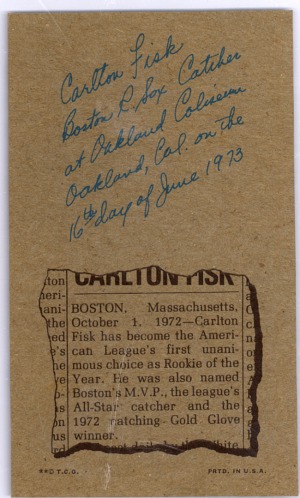 Carlton Fisk
Boston R. Sox Catcher
at Oakland Coliseum
Oakland, Cal. on the
16th day of June 1973
CARLTON FISK
BOSTON, Massachusetts,
October 1, 1972—Carlton
Fisk has become the Ameri-
can League's first unani-
mous choice as Rookie of the
Year. He was also named
Boston's M.V.P., the league's
All-Star catcher and the
1972 catching Gold Glove
winner.
T.C.G.
PRTD. IN U.S.A.